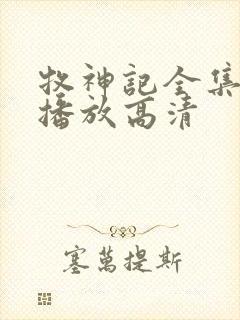 牧神记全集
播放高清
塞萬提斯